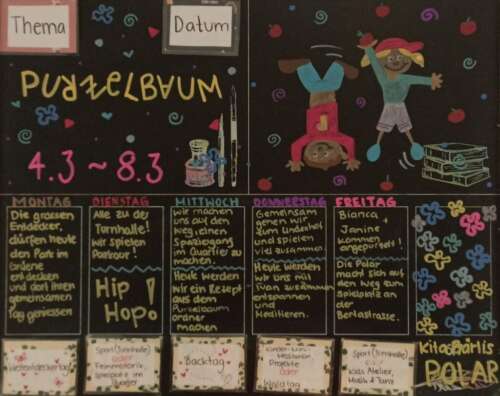 Thema
Datum
PURZELBAUM
4.3 ~ 8.3
MONTAG
Die grossen
Entdecker,
dürfen heute
den Park im
Grüene
entdecken
und dort ihren
gemeinsamen
Tag geniessen
DIENSTAG
Alle zu der
Turnhalle!
Wir spielen
Parkour!
Hip
Hop!
MITTWOCH
Wir machen
uns auf den
Weg, einen
Spaziergang
im Quartier zu
machen.
Heute werden
wir ein Rezept
aus dem
Purzelbaum
ordner
machen
DONNERSTAG
Gemeinsam
gehen wir
zum Lindenhof
und spielen
viel zusammen.
Heute werden
wir uns mit
Yvan zusammen
entspannen
und
Meditieren.
FREITAG
Bianca
+
Janine
kommen
angepurzelt!
Die Polar
macht sich auf
den Weg zum
Spielplatz an der
Bertastrasse.
Weltentdeckertag
Sport (Turnhalle)
oder
Feinmotorik,
Spielplatz im
Quartier
Backtag
Projekte
oder
Waldtag
Sport (Turnhalle)
Kids Atelier,
Musik & Tanz
POLAR